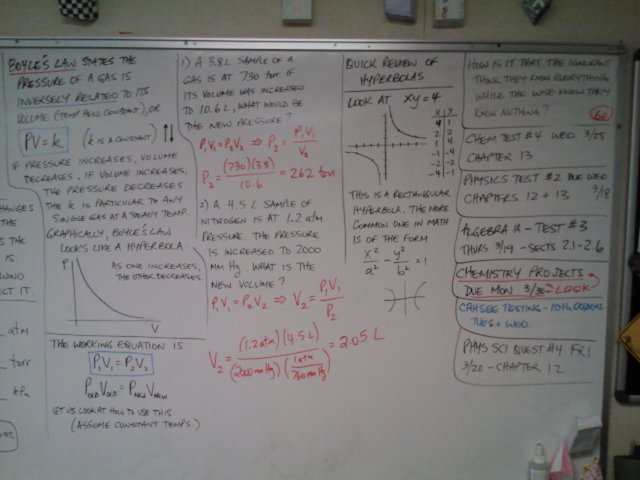 BOYLE'S LAW STATES THE
PRESSURE OF A GAS IS
INVERSELY RELATED TO ITS
VOLUME (TEMP HELD CONSTANT), OR
PV = k (k IS A CONSTANT)
IF PRESSURE INCREASES, VOLUME
DECREASES. IF VOLUME INCREASES,
THE PRESSURE DECREASES.
THE k IS PARTICULAR TO ANY
SINGLE GAS AT A STEADY TEMP.
GRAPHICALLY, BOYLE'S LAW
LOOKS LIKE A HYPERBOLA.
P
AS ONE INCREASES,
THE OTHER DECREASES.
V
THE WORKING EQUATION IS
P1V1 = P2V2
POLD VOLD = PNEW VNEW
LET US LOOK AT HOW TO USE THIS.
(ASSUME CONSTANT TEMPS.)
HANGES
THE
S THE
IS.
WIND
ECT IT.
atm
torr
kPa
1) A 3.8L SAMPLE OF A
GAS IS AT 730 torr. IF
ITS VOLUME WAS INCREASED
TO 10.6 L, WHAT WOULD BE
THE NEW PRESSURE?
P1V1 = P2V2 ⇒ P2 = P1V1 / V2
P2 = (730)(3.8) / 10.6 = 262 torr
2) A 4.5 L SAMPLE OF
NITROGEN IS AT 1.2 atm
PRESSURE. THE PRESSURE
IS INCREASED TO 2000
mm Hg. WHAT IS THE
NEW VOLUME?
P1V1 = P2V2 ⇒ V2 = P1V1 / P2
V2 = (1.2 atm)(4.5 L) / (2000 mm Hg)(1 atm / 760 mm Hg) = 2.05 L
QUICK REVIEW OF
HYPERBOLAS
LOOK AT xy = 4
x y
4 1
2 2
1 4
-1 -4
-2 -2
-4 -1
THIS IS A RECTANGULAR
HYPERBOLA. THE MORE
COMMON ONE IN MATH
IS OF THE FORM
x²/a² - y²/b² = 1
HOW IS IT THAT THE IGNORANT
THINK THEY KNOW EVERYTHING
WHILE THE WISE KNOW THEY
KNOW NOTHING?
CHEM TEST #4 WED 3/25
CHAPTER 13
PHYSICS TEST #2 DUE WED
CHAPTERS 12 + 13 3/18
ALGEBRA 1A - TEST #3
THURS 3/19 - SECTS 2.1-2.6
CHEMISTRY PROJECTS
DUE MON 3/30 LOOK
CAHSEE TESTING - 10TH GRADERS
TUES + WED.
PHYS SCI QUEST #4 FRI
3/20 - CHAPTER 12